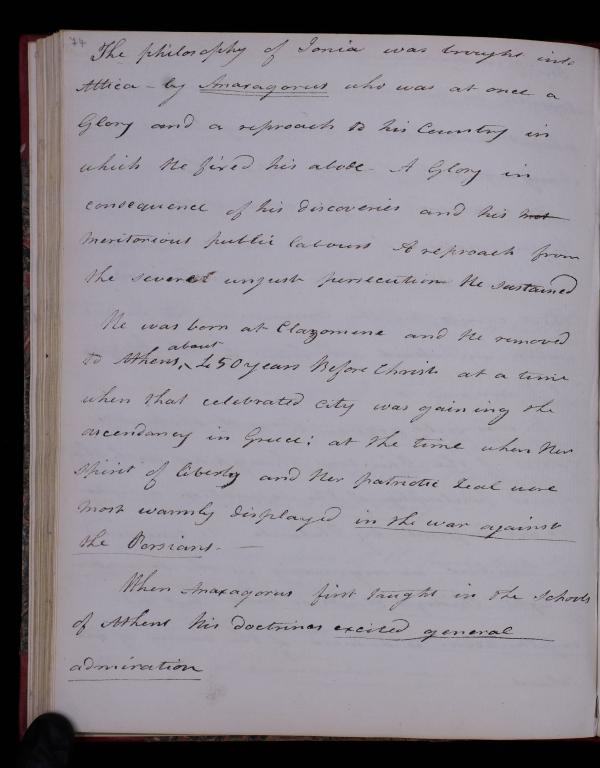 74
The philosophy of Ionia was brought into
Attica - by Anaxagorus who was at once a
Glory and a reproach to his Country in
which He fixed his abode - A Glory in
consequence of his discoveries and his not
meritorious public labours A reproach from
the severe unjust persecution He sustained
He was born at Clazomene and He removed
about
to Athens, 450 years Before Christ at a time
when that celebrated city was gaining the
ascendancy in Greece; at the time when Her
Spirit of liberty and Her patriotic zeal were
most warmly displayed in the war against
the Persians. -
When Anaxagorus first taught in the Schools
of Athens His doctrines excited general
admiration